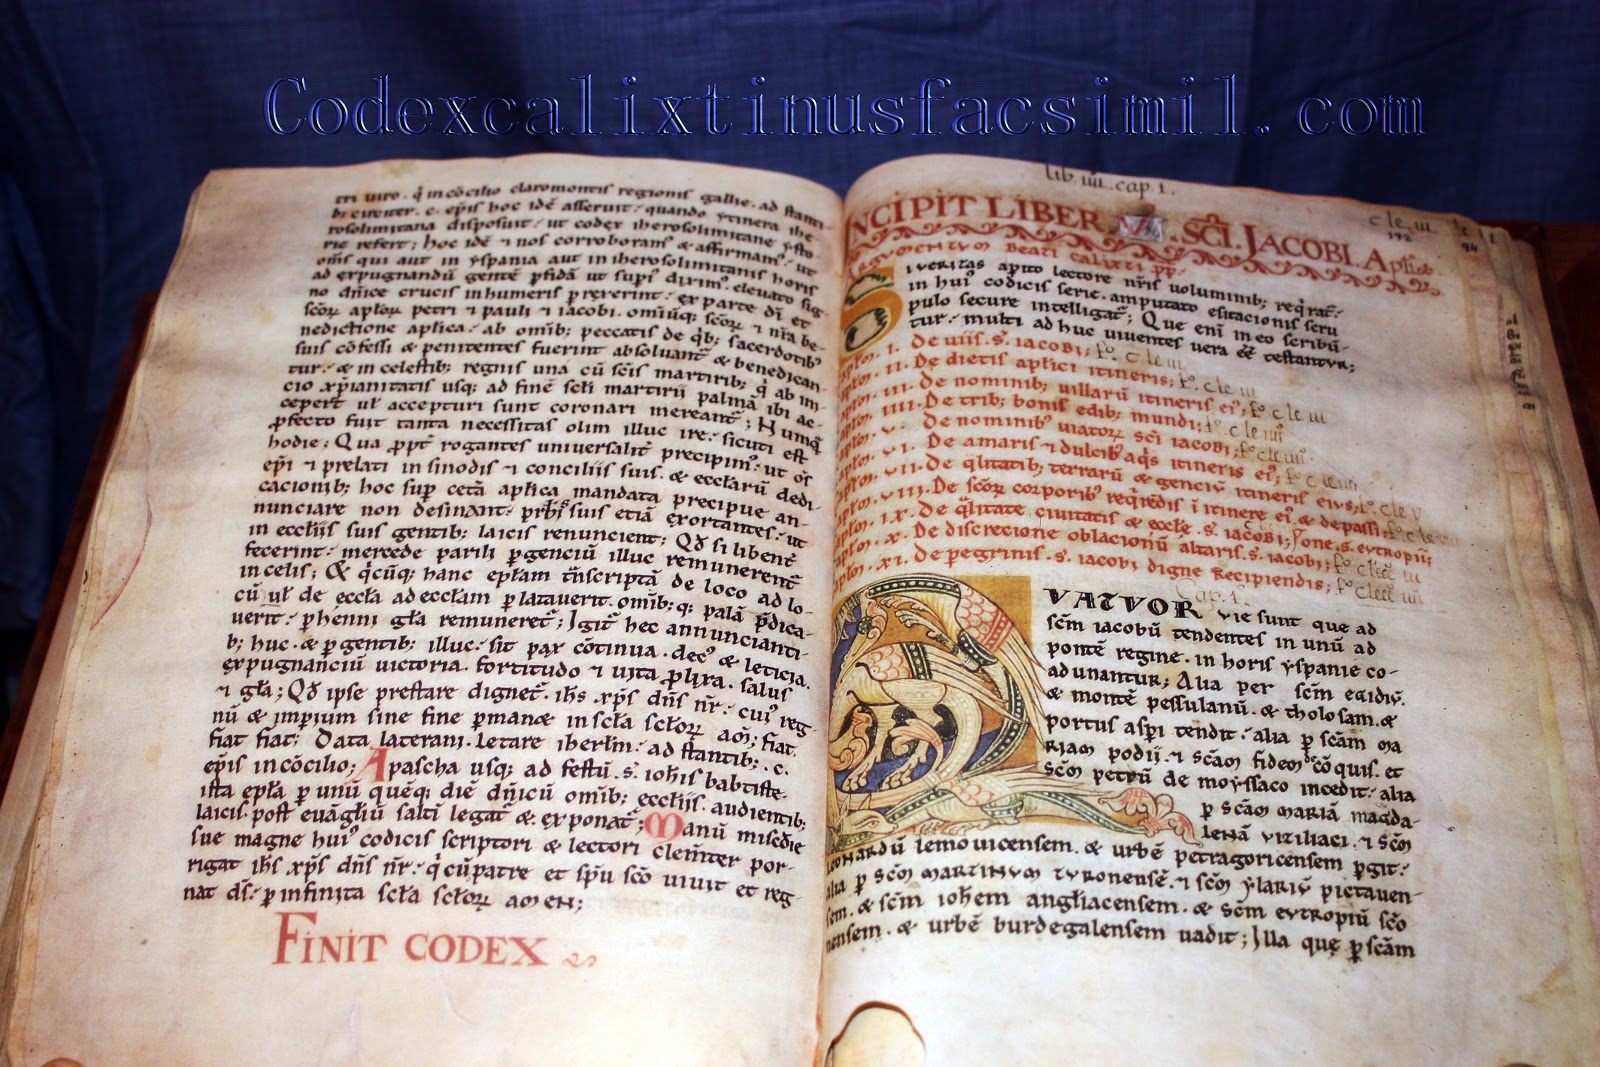 Codexcalixtinusfacsimil.com
tri uiro. q̇ in cōcilio claromontis regionis gallie. ad stanti-
b; circiter. c. ep̄is hoc idē asseruit. quando ytinera ihe
rosolimitana disposuit. ut codex iherosolimitane ysto
rie refert; hoc idē ⁊ nos corroboram᷒ & affirmam᷒. ut
om̄s qui aut in yspania aut in iherosolimitanis horis
ad expugnandū gentē ꝑfidā ut sup᷒ dixim᷒. elevato sig-
no dn̄ice crucis in humeris ꝑrexerint. ex parte dī et
sc̄oꝝ ap̄loꝝ petri ⁊ pauli ⁊ iacobi. omiūq; sc̄oꝝ ⁊ nr̄a be-
nedictione aplica. ab omīb; peccatis de q̇b; sacerdotib᷒
suis cōfessi & penitentes fuerint absoluant᷒ & benedican-
tur. & in celestib; regnis una cū sc̄is martirib; q̇ ab in-
cio xp̄ianitatis usq; ad finē scl̄i martirii palmā ibi ac-
ceper̄t ul̄ accepturi sunt coronari mereant᷒; Hūmq̄
ꝓfecto fuit tanta necessitas olim illuc ire. sicuti est
hodie; Qua ꝓpt᷒ rogantes universalit᷒ precipim᷒. ut om̄s
ep̄i ⁊ prelati in sinodis ⁊ conciliis suis. & ecclārū dedi
cacionib; hoc sup̄ cet᷒a aplica mandata precipue an-
nunciare non desinant. prb̄os suis etiā exortantes. ut
in ecclīis suis gentib; laicis renuncient; Qd̄ si libent᷒
fecerint. mercede parili ꝑgenciū illuc remunerent᷒
in celis; & q̇cūq; hanc epl̄am t᷒nscriptā de loco ad lo-
cū ul̄ de ecclā ad ecclam ꝑlataverit. omīb; q; palā p̄dica-
verit. ꝑhenni gl̄a remuneret᷒; Igit᷒ hec annuncianti-
b; huc. & ꝑgentib; illuc. sit pax cōtinua. dec᷒ & leticia.
expugnanciū uictoria. fortitudo ⁊ uita ꝓlixa. salus
⁊ gl̄a; Qd̄ ipse prestare dignet᷒. ihs̄ xp̄s dn̄s nr̄. cui᷒ reg-
nū & impium sine fine ꝑmanet in sc̄la sc̄loꝝ. am̄; fiat.
fiat fiat; Data laterani. letare iherl̄m. ad stantib;. c.
ep̄is in cōcilio; A pascha usq; ad festū. s̄. ioh̄is babtiste-
ista epl̄a ꝑ unū quēq; diē dn̄icū omīb; ecclīis. audientib;
laicis. post evāgliū saltī legat᷒ & exponat᷒; Manū misc̄die
sue magne hui᷒ codicis scriptori & lectori clem̄ter por-
rigat ihs̄ xp̄s dn̄s nr̄. q̇ cū patre et sp̄u sc̄o uiuit et reg-
nat ds̄. ꝑ infinita sc̄la sc̄loꝝ amen;
FINIT CODEX
lib. iiii. cap. 1.
INCIPIT LIBER . SC̄I. JACOBI. Apl̄i
192
94
ARGVMENTVM BEATI CALIXTI P̄P.
SI VERITAS apito lectore nr̄is voluminib; req̇rat᷒.
in hui᷒ codicis serie. amputato esitacionis scru
pulo secure intelligat᷒; Que enī in eo scribū-
tur. multi ad huc viventes vera eē testantur;
I. De viis. s̄. iacobi;
II. De dietis aplici itineris;
III. De nominib; villarū itineris ei᷒;
IIII. De trib; bonis edib; mundi;
V. De nominib᷒ uiatoꝝ sc̄i iacobi;
VI. De amaris ⁊ dulcib᷒ aq̇s itineris ei᷒;
VII. De q̄litatib; terrarū & genciū itineris eius;
VIII. De sc̄oꝝ corporib᷒ req̇rēdis ī itinere ei᷒ & de passione s̄. eutropii;
IX. De q̄litate civitatis & eccle. s̄. iacobi;
X. De discrecione oblacionū altaris. s̄. iacobi;
XI. De peregrinis. s̄. iacobi digne recipiendis;
Cap. 1.
QVATVOR vie sunt que ad
sc̄m iacobū tendentes in unū ad
pontē regine. in horis yspanie co-
adunantur; Alia per sc̄m egidiū.
& montē pessulanū. & tholosam. &
portus aspi tendit. alia ꝑ sc̄am ma
riam podii. ⁊ sc̄am fidem cōquis. et
sc̄m petrū de moyssaco incedit. alia
ꝑ sc̄am mariā magda-
lenā viziliaci. ⁊ sc̄m
leonardū lemovicensem. & urbē petragoricensem ꝑgit.
alia ꝑ sc̄m martinum turonensē. ⁊ sc̄m ylariū pictaven-
sem. & sc̄m iohem angliacensem. & sc̄m eutropiū sc̄to
nensem. & urbē burdegalensem uadit; Illa que ꝑ sc̄am